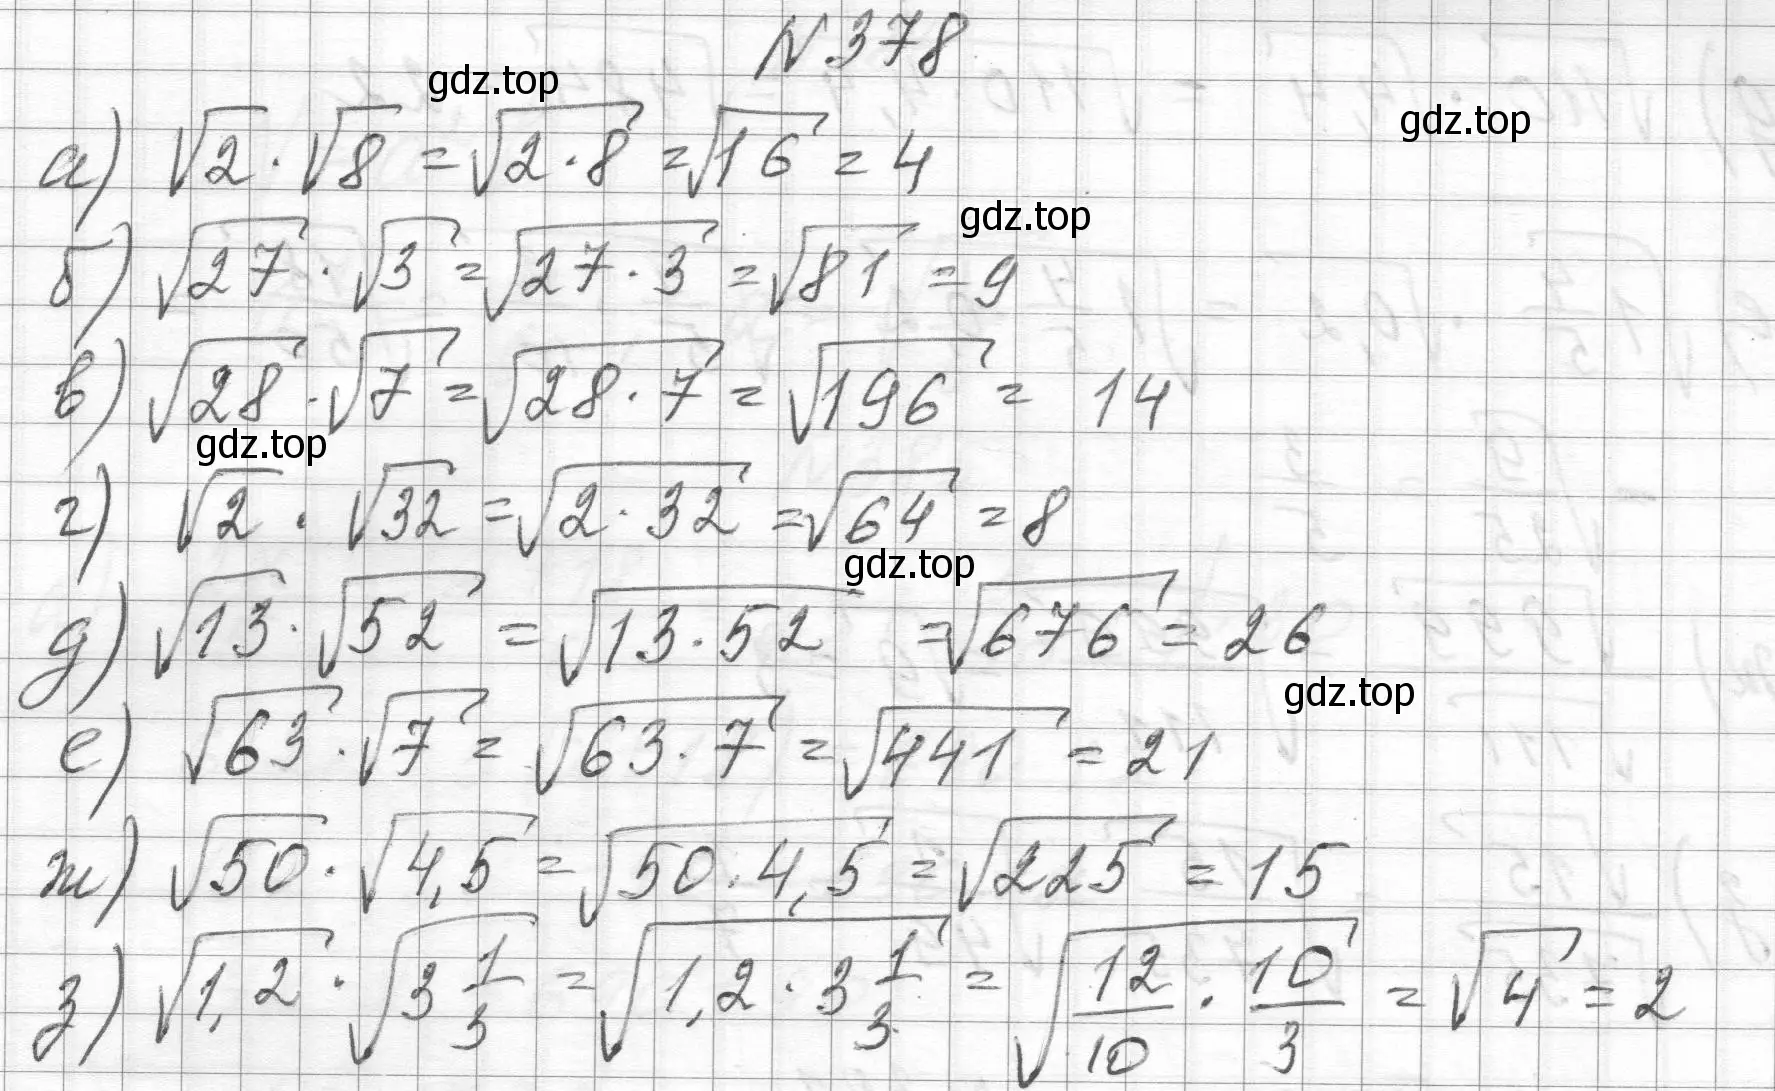 N.378
gdz.top
gdz.top
а) √2 · √8 = √(2 · 8) = √16 = 4
gdz.top
б) √27 · √3 = √(27 · 3) = √81 = 9
в) √28 · √7 = √(28 · 7) = √196 = 14
gdz.top
г) √2 · √32 = √(2 · 32) = √64 = 8
gdz.top
д) √13 · √52 = √(13 · 52) = √676 = 26
gdz.top
е) √63 · √7 = √(63 · 7) = √441 = 21
ж) √50 · √4,5 = √(50 · 4,5) = √225 = 15
з) √1,2 · √(3 1/3) = √(1,2 · 3 1/3) = √(12/10 · 10/3) = √4 = 2